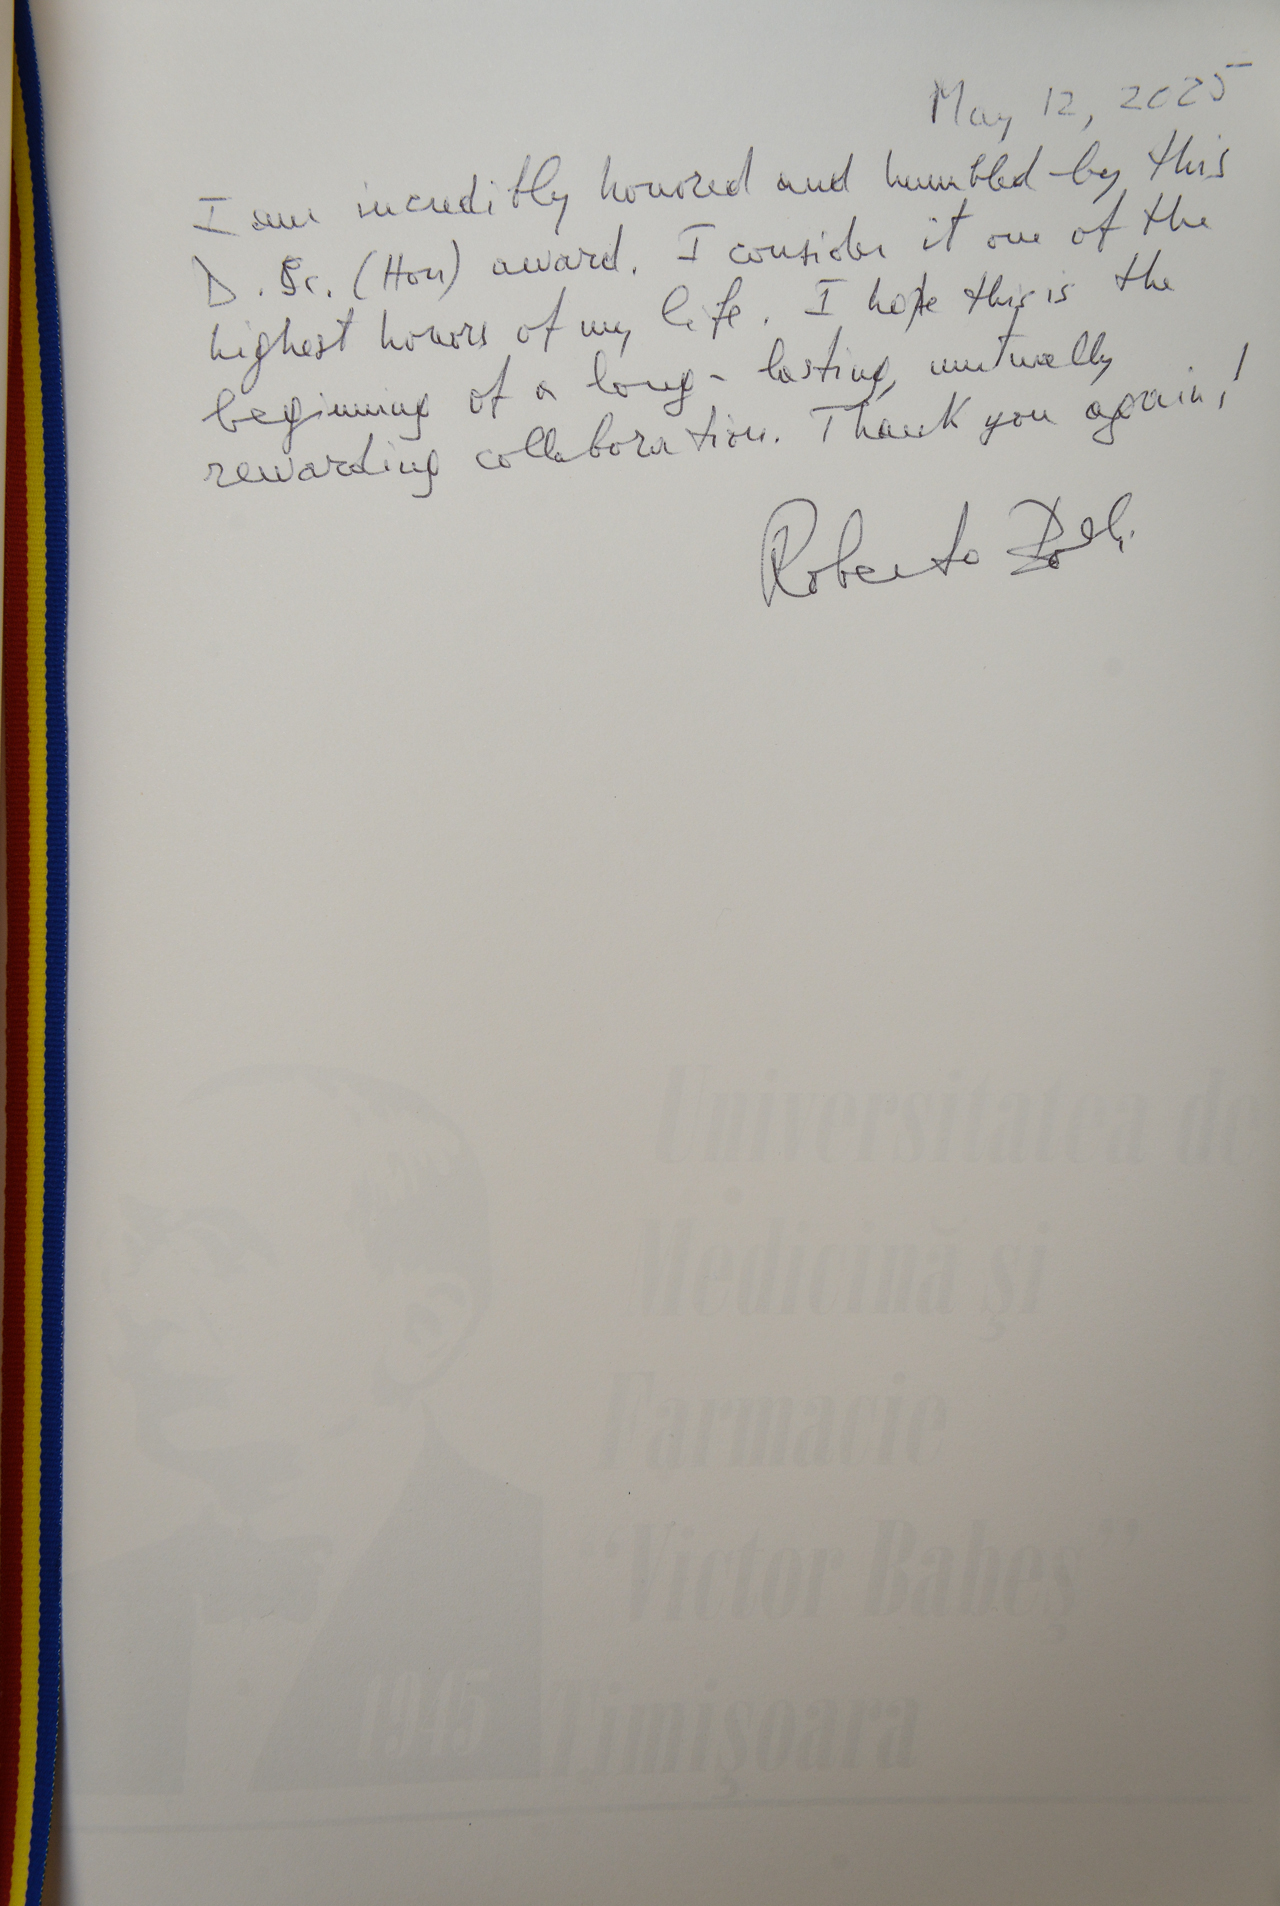 May 12, 2025
I am incredibly honored and humbled by this
D. Sc. (Hon) award. I consider it one of the
highest honors of my life. I hope this is the
beginning of a long-lasting, mutually
rewarding collaboration. Thank you again!
Roberto
Universitatea de
Medicină şi
Farmacie
“Victor Babeş”
1945 Timişoara